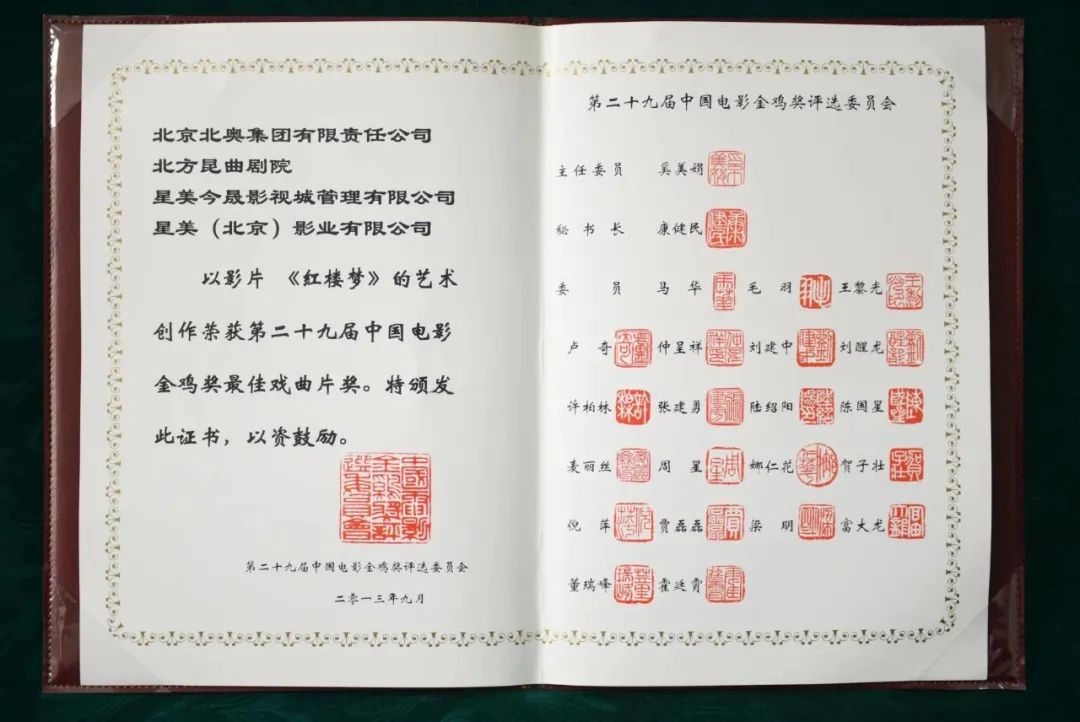 北京北奥集团有限责任公司
北方昆曲剧院
星美今晟影视城管理有限公司
星美（北京）影业有限公司
以影片《红楼梦》的艺术
创作荣获第二十九届中国电影
金鸡奖最佳戏曲片奖。特颁发
此证书，以资鼓励。
第二十九届中国电影金鸡奖评选委员会
二零一三年九月
第二十九届中国电影金鸡奖评选委员会
主任委员 奚美娟
秘书长 康健民
委员 马华 毛羽 王黎光
卢奇 仲呈祥 刘建中 刘醒龙
许柏林 张建勇 陆绍阳 陈国星
麦丽丝 周星 娜仁花 贺子壮
倪萍 贾磊磊 梁明 富大龙
董瑞峰 霍廷霄